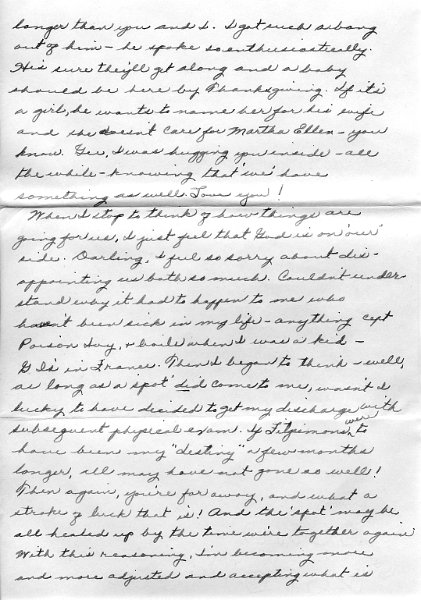 longer than you and I. I get such a bang
out of him - he spoke so enthusiastically.
He's sure they'll get along and a baby
should be here by Thanksgiving. If it's
a girl, he wants to name her for his wife
and she doesn't care for Martha Ellen - you
know. Gee, I was hugging you inside - all
the while - knowing that we've have
something as well. Love you!
When I stop to think of how things are
going for us, I just feel that God is on 'our'
side. Darling, I feel so sorry about dis-
appointing us both so much. Couldn't under-
stand why it had to happen to one who
hasn't been sick in my life - anything cept
Poison Ivy, + boils when I was a kid -
G Is in France. Then I began to think - well,
as long as a spot did come to me, wasn't I
lucky to have decided to get my discharge with
subsequent physical exam. If Fitzsimons were to
have been my "destiny" a few months
longer, all may have not gone so well!
Then again, you're far away, and what a
stroke of luck that is! And the 'spot' may be
all healed up by the time we're together again
With this reasoning, I'm becoming more
and more adjusted and accepting what is